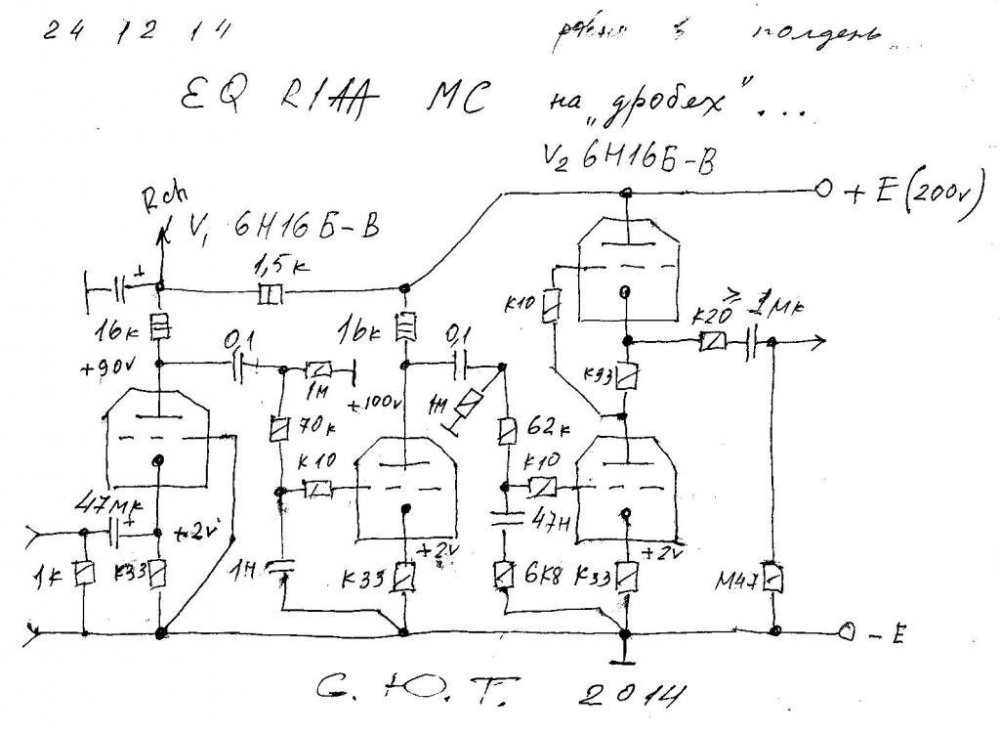 24 12 14
ровно в полдень...
EQ RIAA MC на "дробех"...
V2 6Н16Б-В
+ E (200v)
Rch
V1 6Н16Б-В
+
1,5к
К10
К20
≥ 1мк
16к
0,1
16к
0,1
+90v
1м
+100v
1м
К33
70к
62к
К10
К10
47мк
+
+2v
47н
+2v
+2v
1к
К33
1н
К33
6К8
К33
М47
- E
С. Ю. Т. 2014